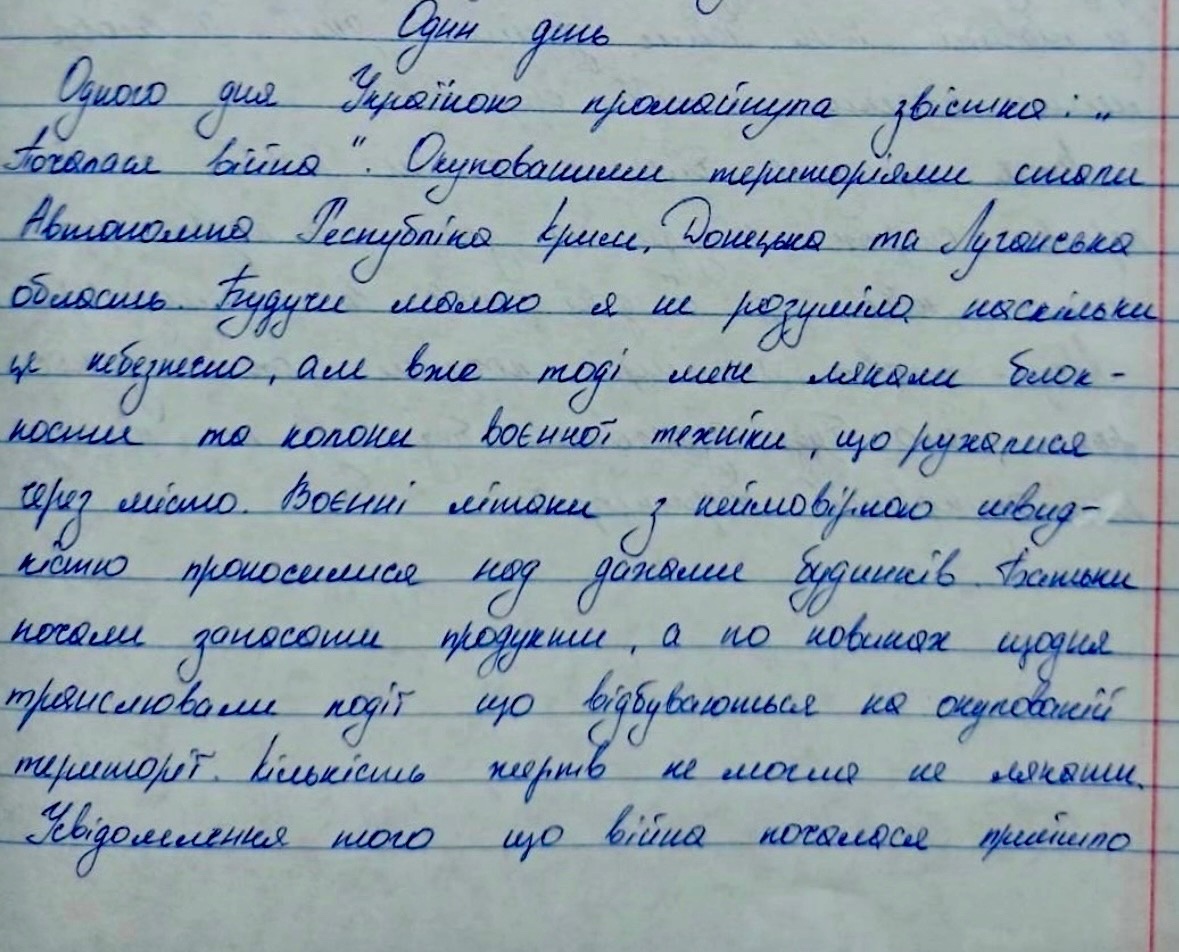 Один день
Одного дня Україною промайнула звістка: „
Почалася війна". Окупованими територіями стали
Автономна Республіка Крим, Донецька та Луганська
область. Будучи малою я не розуміла наскільки
це небезпечно, але вже тоді мене лякали блок-
пости та колони воєнної техніки, що рухалися
через місто. Воєнні літаки з неймовірною швид-
кістю проносилися над дахами будинків. Батьки
почали запасати продукти, а по новинах щодня
транслювали події що відбуваються на окупованій
території. Кількість жертв не могла не лякати.
Усвідомлення того що війна почалася прийшло